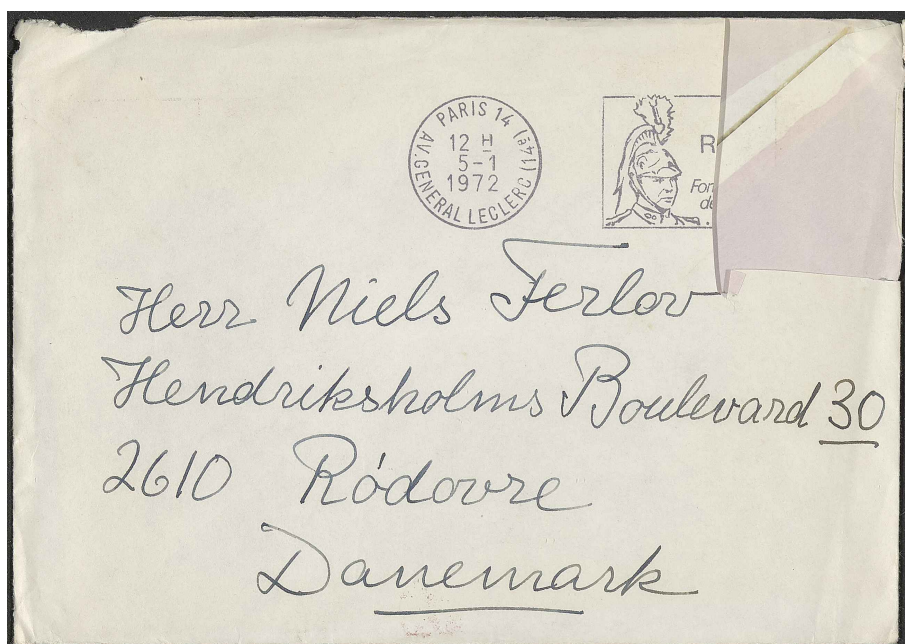 PARIS 14 (14E)
12 H
5-1
1972
AV. GENERAL LECLERC
R
For
de
Herr Niels Ferlov
Hendriksholms Boulevard 30
2610 Ródovre
Danemark